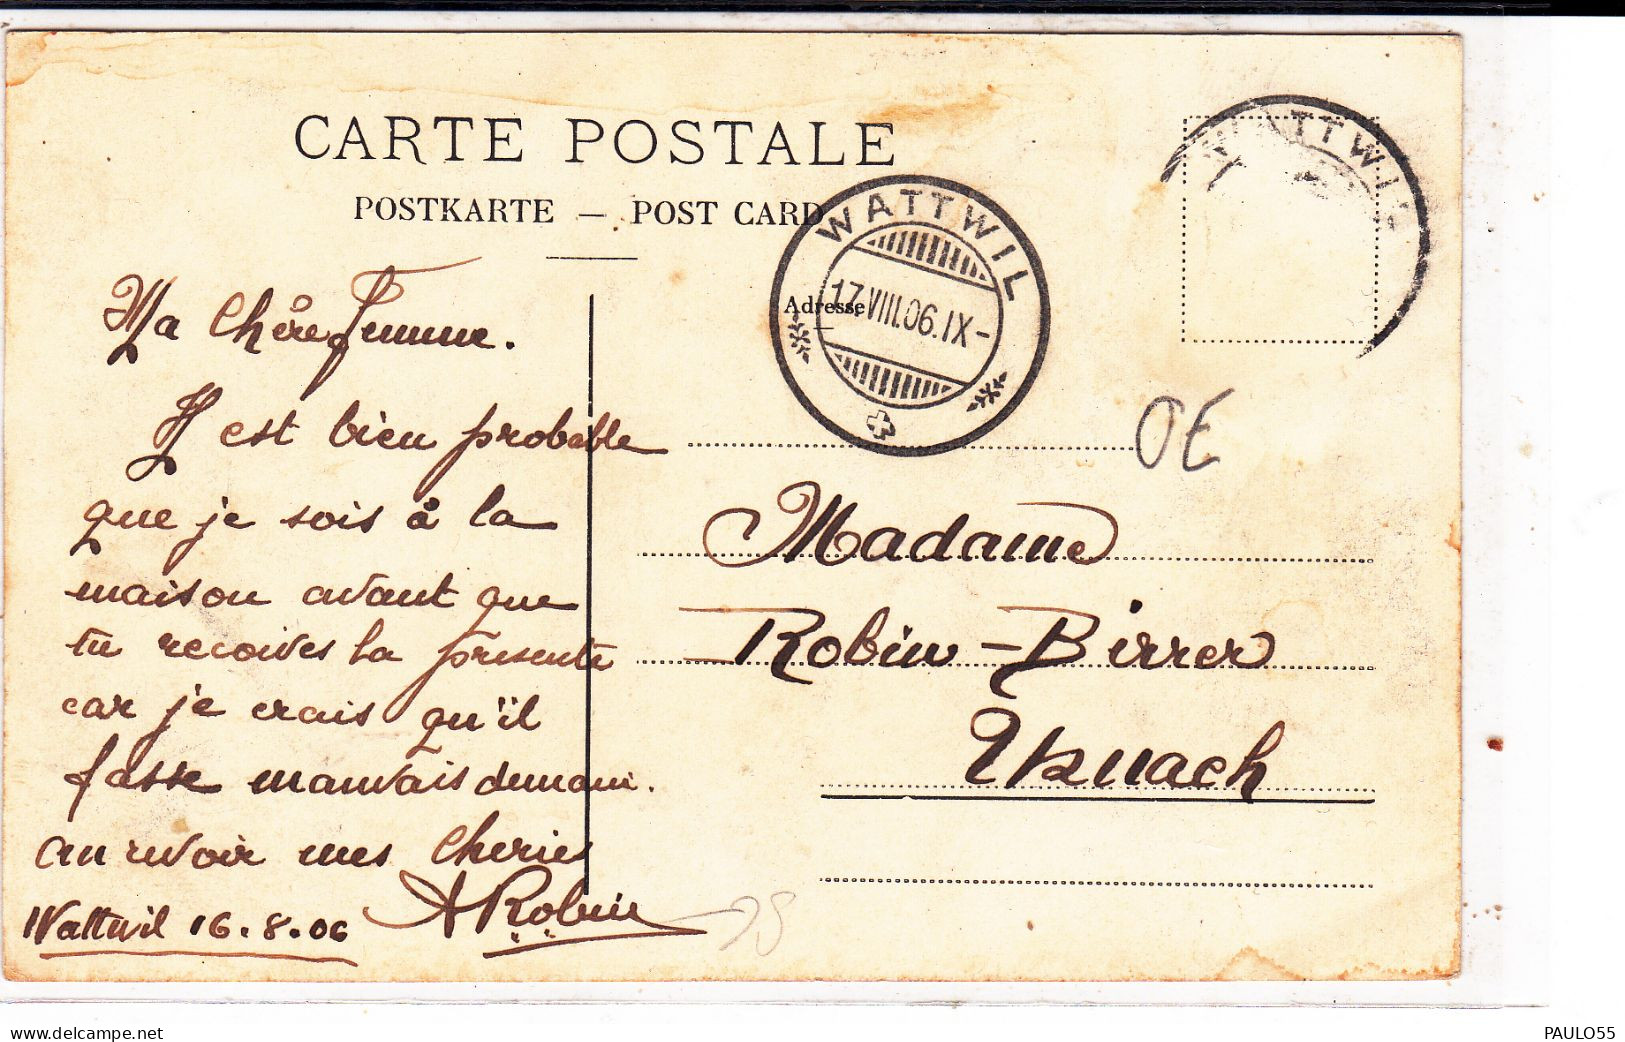 CARTE POSTALE
POSTKARTE — POST CARD
WATTWIL
WATTWIL
17.VIII.06.IX-
Adresse
Ma chère femme.
Il est bien probable
que je sois à la
maison avant que
tu recoives la présente
car je crais qu'il
fasse mauvais demain.
au revoir mes cheries
Wattwil 16.8.06 A Robin
OE
Madame
Robin-Birrer
Uznach
www.delcampe.net
PAULO55